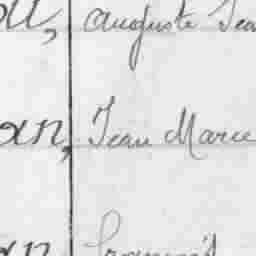 Auguste Jea
an, Jean Marie
an François